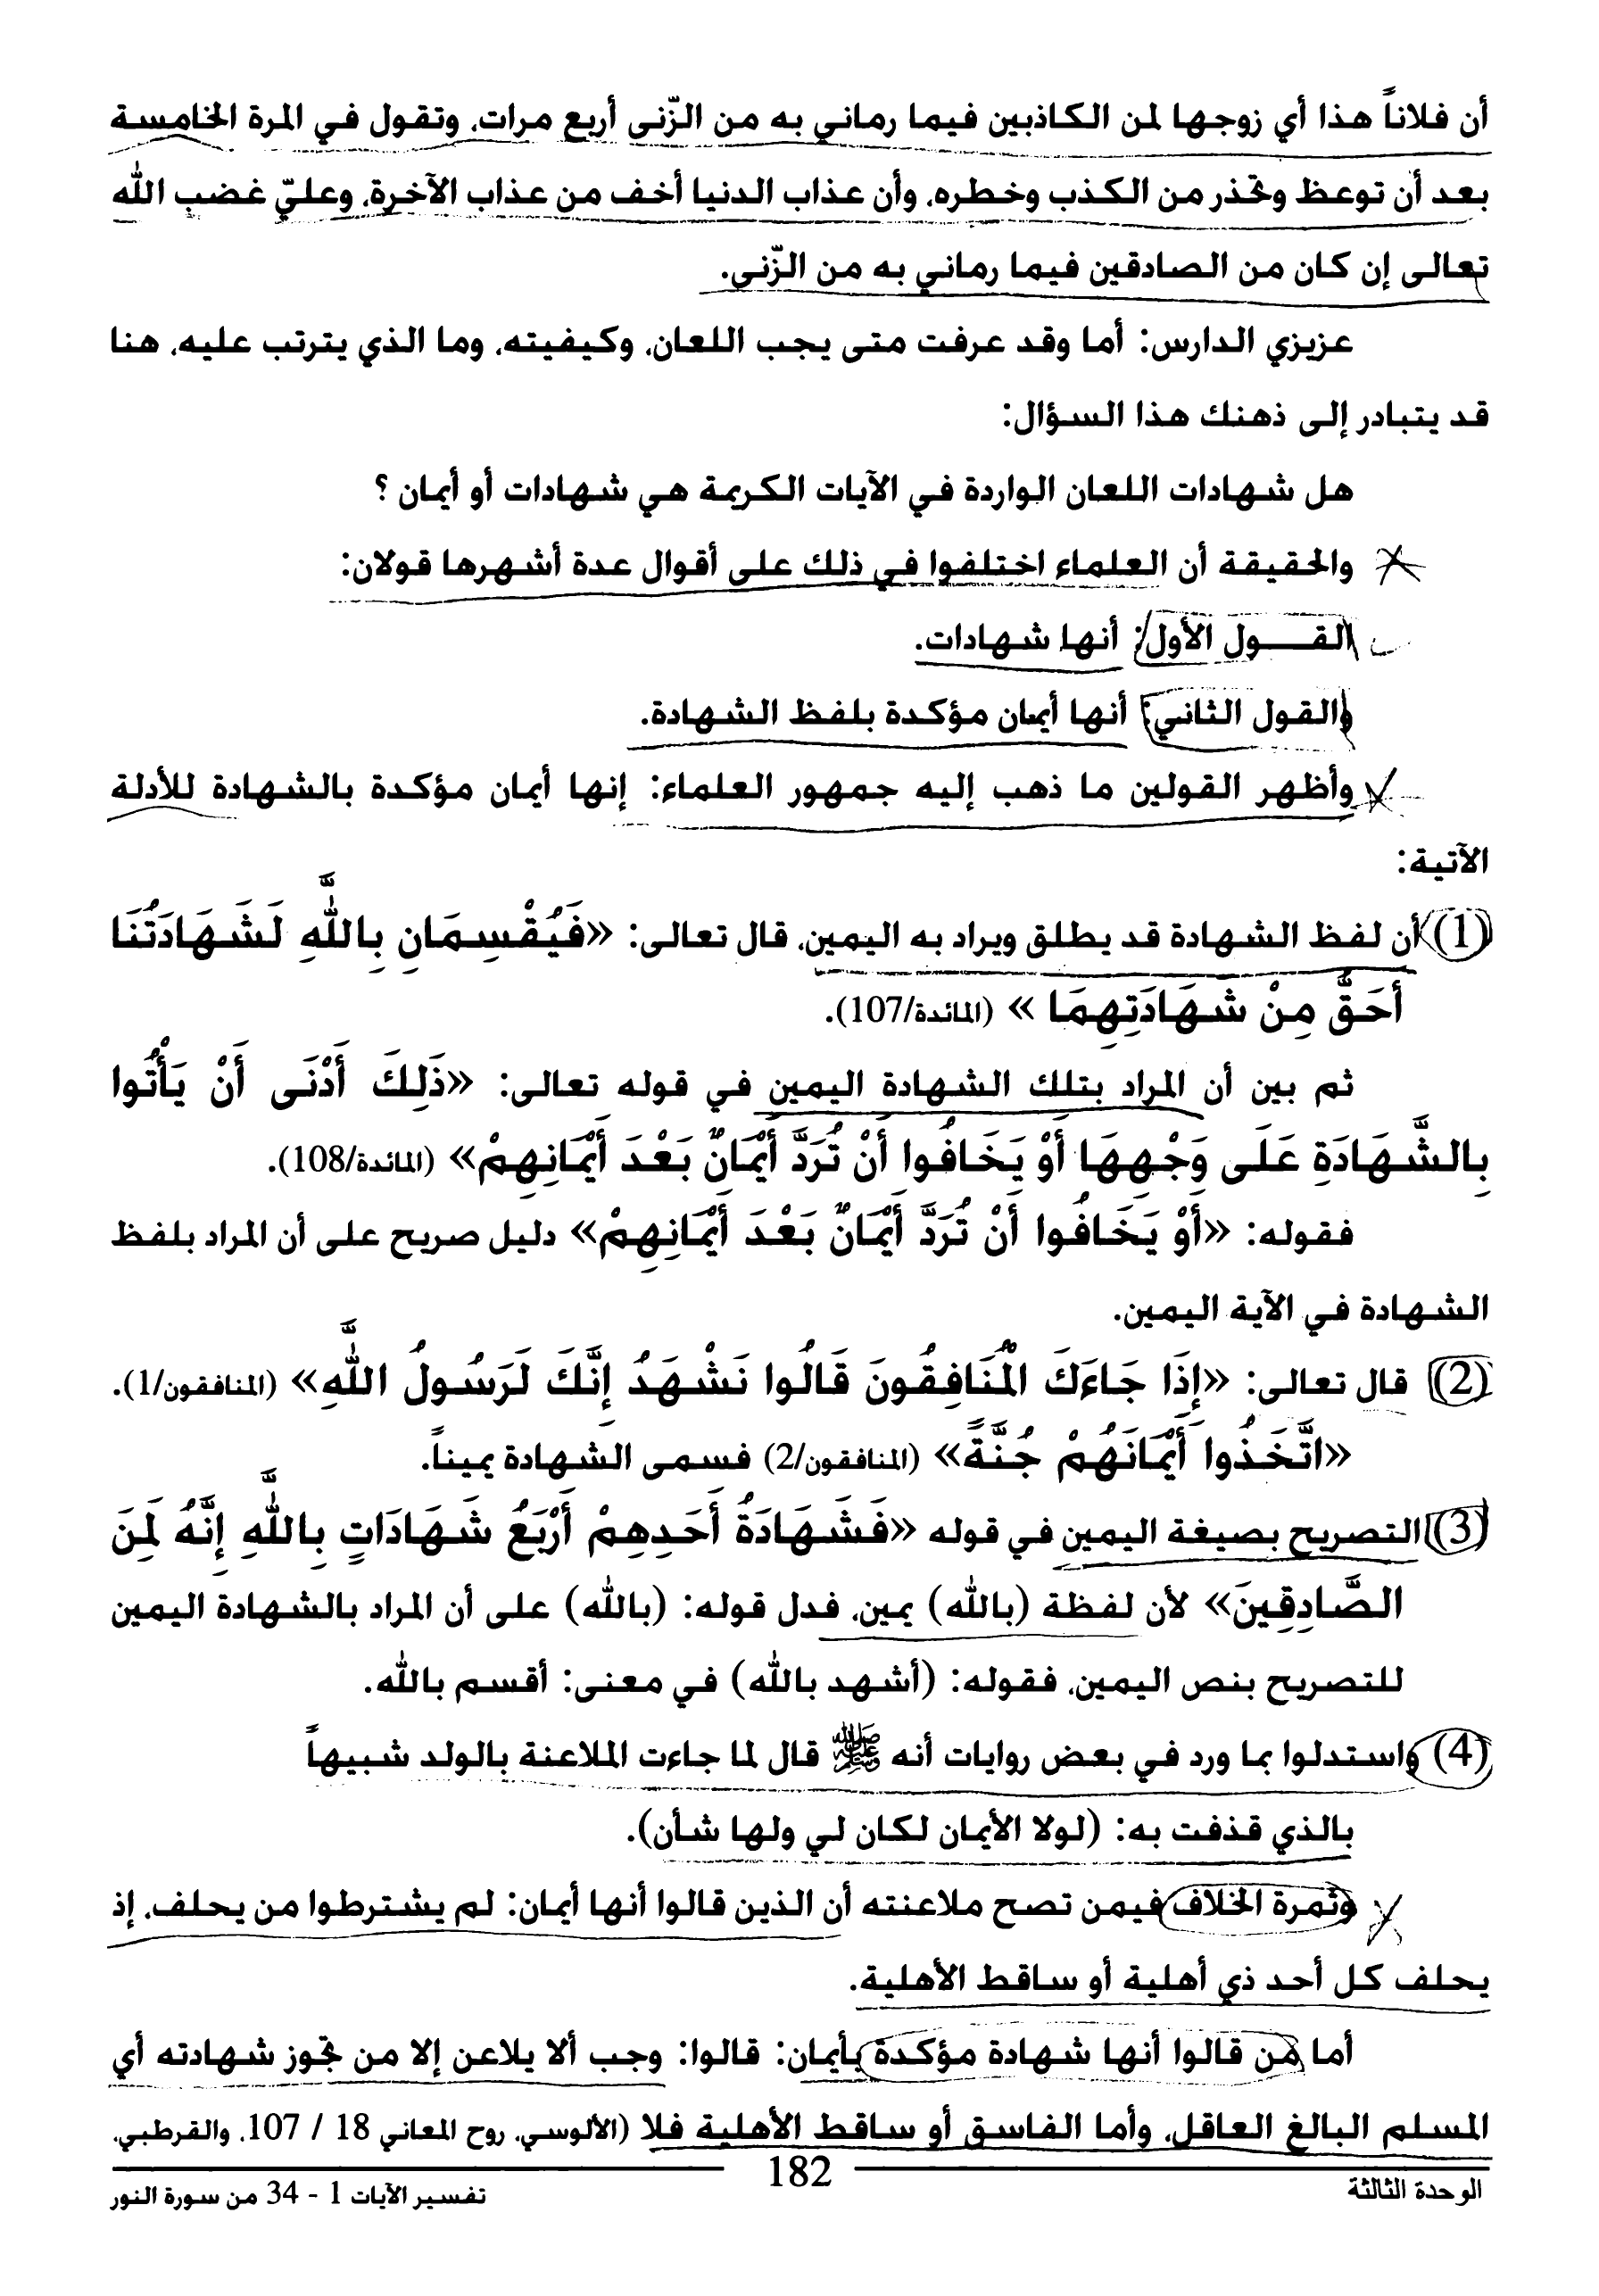 أن فلاناً هذا أي زوجها لمن الكاذبين فيما رماني به من الزّنى أربع مرات، وتقول في المرة الخامسة
بعد أن توعظ وتحذر من الكذب وخطره، وأن عذاب الدنيا أخف من عذاب الآخرة، وعليّ غضب الله
تعالى إن كان من الصادقين فيما رماني به من الزّنى.
عزيزي الدارس: أما وقد عرفت متى يجب اللعان، وكيفيته، وما الذي يترتب عليه، هنا
قد يتبادر إلى ذهنك هذا السؤال:
هل شهادات اللعان الواردة في الآيات الكريمة هي شهادات أو أيمان ؟
والحقيقة أن العلماء اختلفوا في ذلك على أقوال عدة أشهرها قولان:
القول الأول: أنها شهادات.
والقول الثاني: أنها أيمان مؤكدة بلفظ الشهادة.
وأظهر القولين ما ذهب إليه جمهور العلماء: إنها أيمان مؤكدة بالشهادة للأدلة
الآتية:
(1) أن لفظ الشهادة قد يطلق ويراد به اليمين، قال تعالى: «فَيُقْسِمَانِ بِاللَّهِ لَشَهَادَتُنَا
أَحَقُّ مِنْ شَهَادَتِهِمَا » (المائدة/107).
ثم بين أن المراد بتلك الشهادة اليمين في قوله تعالى: «ذَلِكَ أَدْنَى أَنْ يَأْتُوا
بِالشَّهَادَةِ عَلَى وَجْهِهَا أَوْ يَخَافُوا أَنْ تُرَدَّ أَيْمَانٌ بَعْدَ أَيْمَانِهِمْ» (المائدة/108).
فقوله: «أَوْ يَخَافُوا أَنْ تُرَدَّ أَيْمَانٌ بَعْدَ أَيْمَانِهِمْ» دليل صريح على أن المراد بلفظ
الشهادة في الآية اليمين.
(2) قال تعالى: «إِذَا جَاءَكَ الْمُنَافِقُونَ قَالُوا نَشْهَدُ إِنَّكَ لَرَسُولُ اللَّهِ» (المنافقون/1).
«اتَّخَذُوا أَيْمَانَهُمْ جُنَّةً» (المنافقون/2) فسمى الشهادة يميناً.
(3) التصريح بصيغة اليمين في قوله «فَشَهَادَةُ أَحَدِهِمْ أَرْبَعُ شَهَادَاتٍ بِاللَّهِ إِنَّهُ لَمِنَ
الصَّادِقِينَ» لأن لفظة (بالله) يمين، فدل قوله: (بالله) على أن المراد بالشهادة اليمين
للتصريح بنص اليمين، فقوله: (أشهد بالله) في معنى: أقسم بالله.
(4) واستدلوا بما ورد في بعض روايات أنه ﷺ قال لما جاءت الملاعنة بالولد شبيهاً
بالذي قذفت به: (لولا الأيمان لكان لي ولها شأن).
وثمرة الخلاف فيمن تصح ملاعنته أن الذين قالوا أنها أيمان: لم يشترطوا من يحلف، إذ
يحلف كل أحد ذي أهلية أو ساقط الأهلية.
أما من قالوا أنها شهادة مؤكدة بأيمان: قالوا: وجب ألا يلاعن إلا من تجوز شهادته أي
المسلم البالغ العاقل، وأما الفاسق أو ساقط الأهلية فلا (الألوسي، روح المعاني 18 / 107، والقرطبي،
الوحدة الثالثة 182 تفسير الآيات 1 - 34 من سورة النور